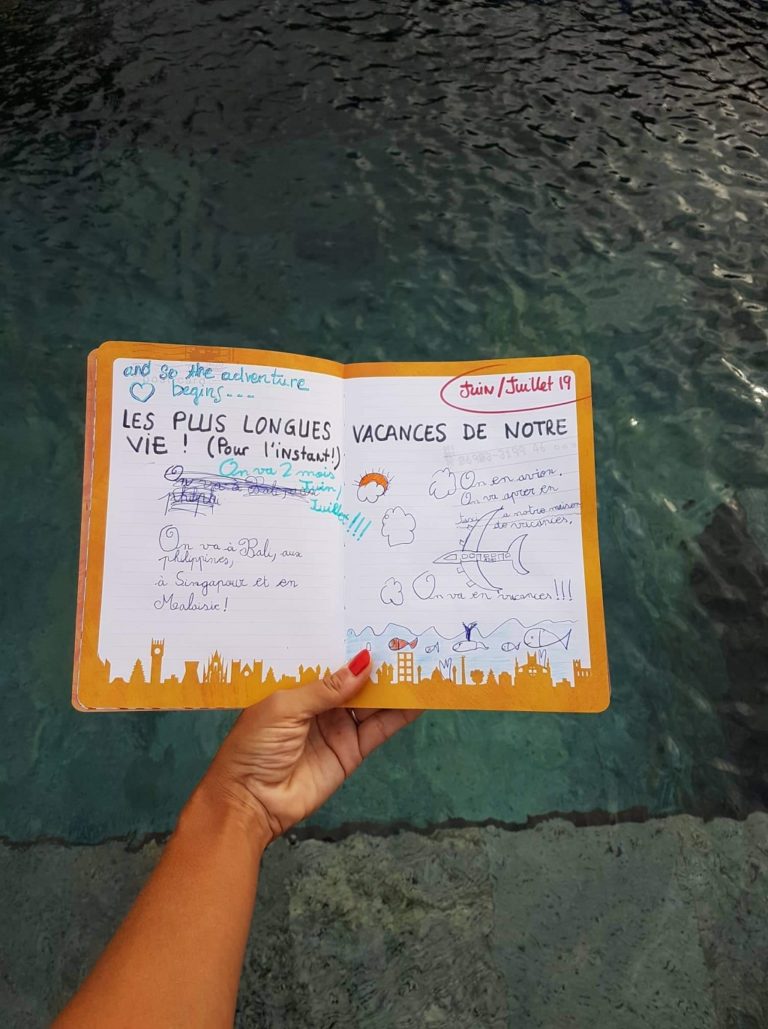 and so the adventure
begins---
Juin/Juillet 19
LES PLUS LONGUES VACANCES DE NOTRE
VIE ! (Pour l'instant!)
On va 2 mois
Juin/
Juillet!!!
On va à Bali
On va à Bali, aux
philippines,
à Singapour et en
Malaisie!
On en avion.
On va aprer en
a notre maison
de vacances.
On va en vacances!!!